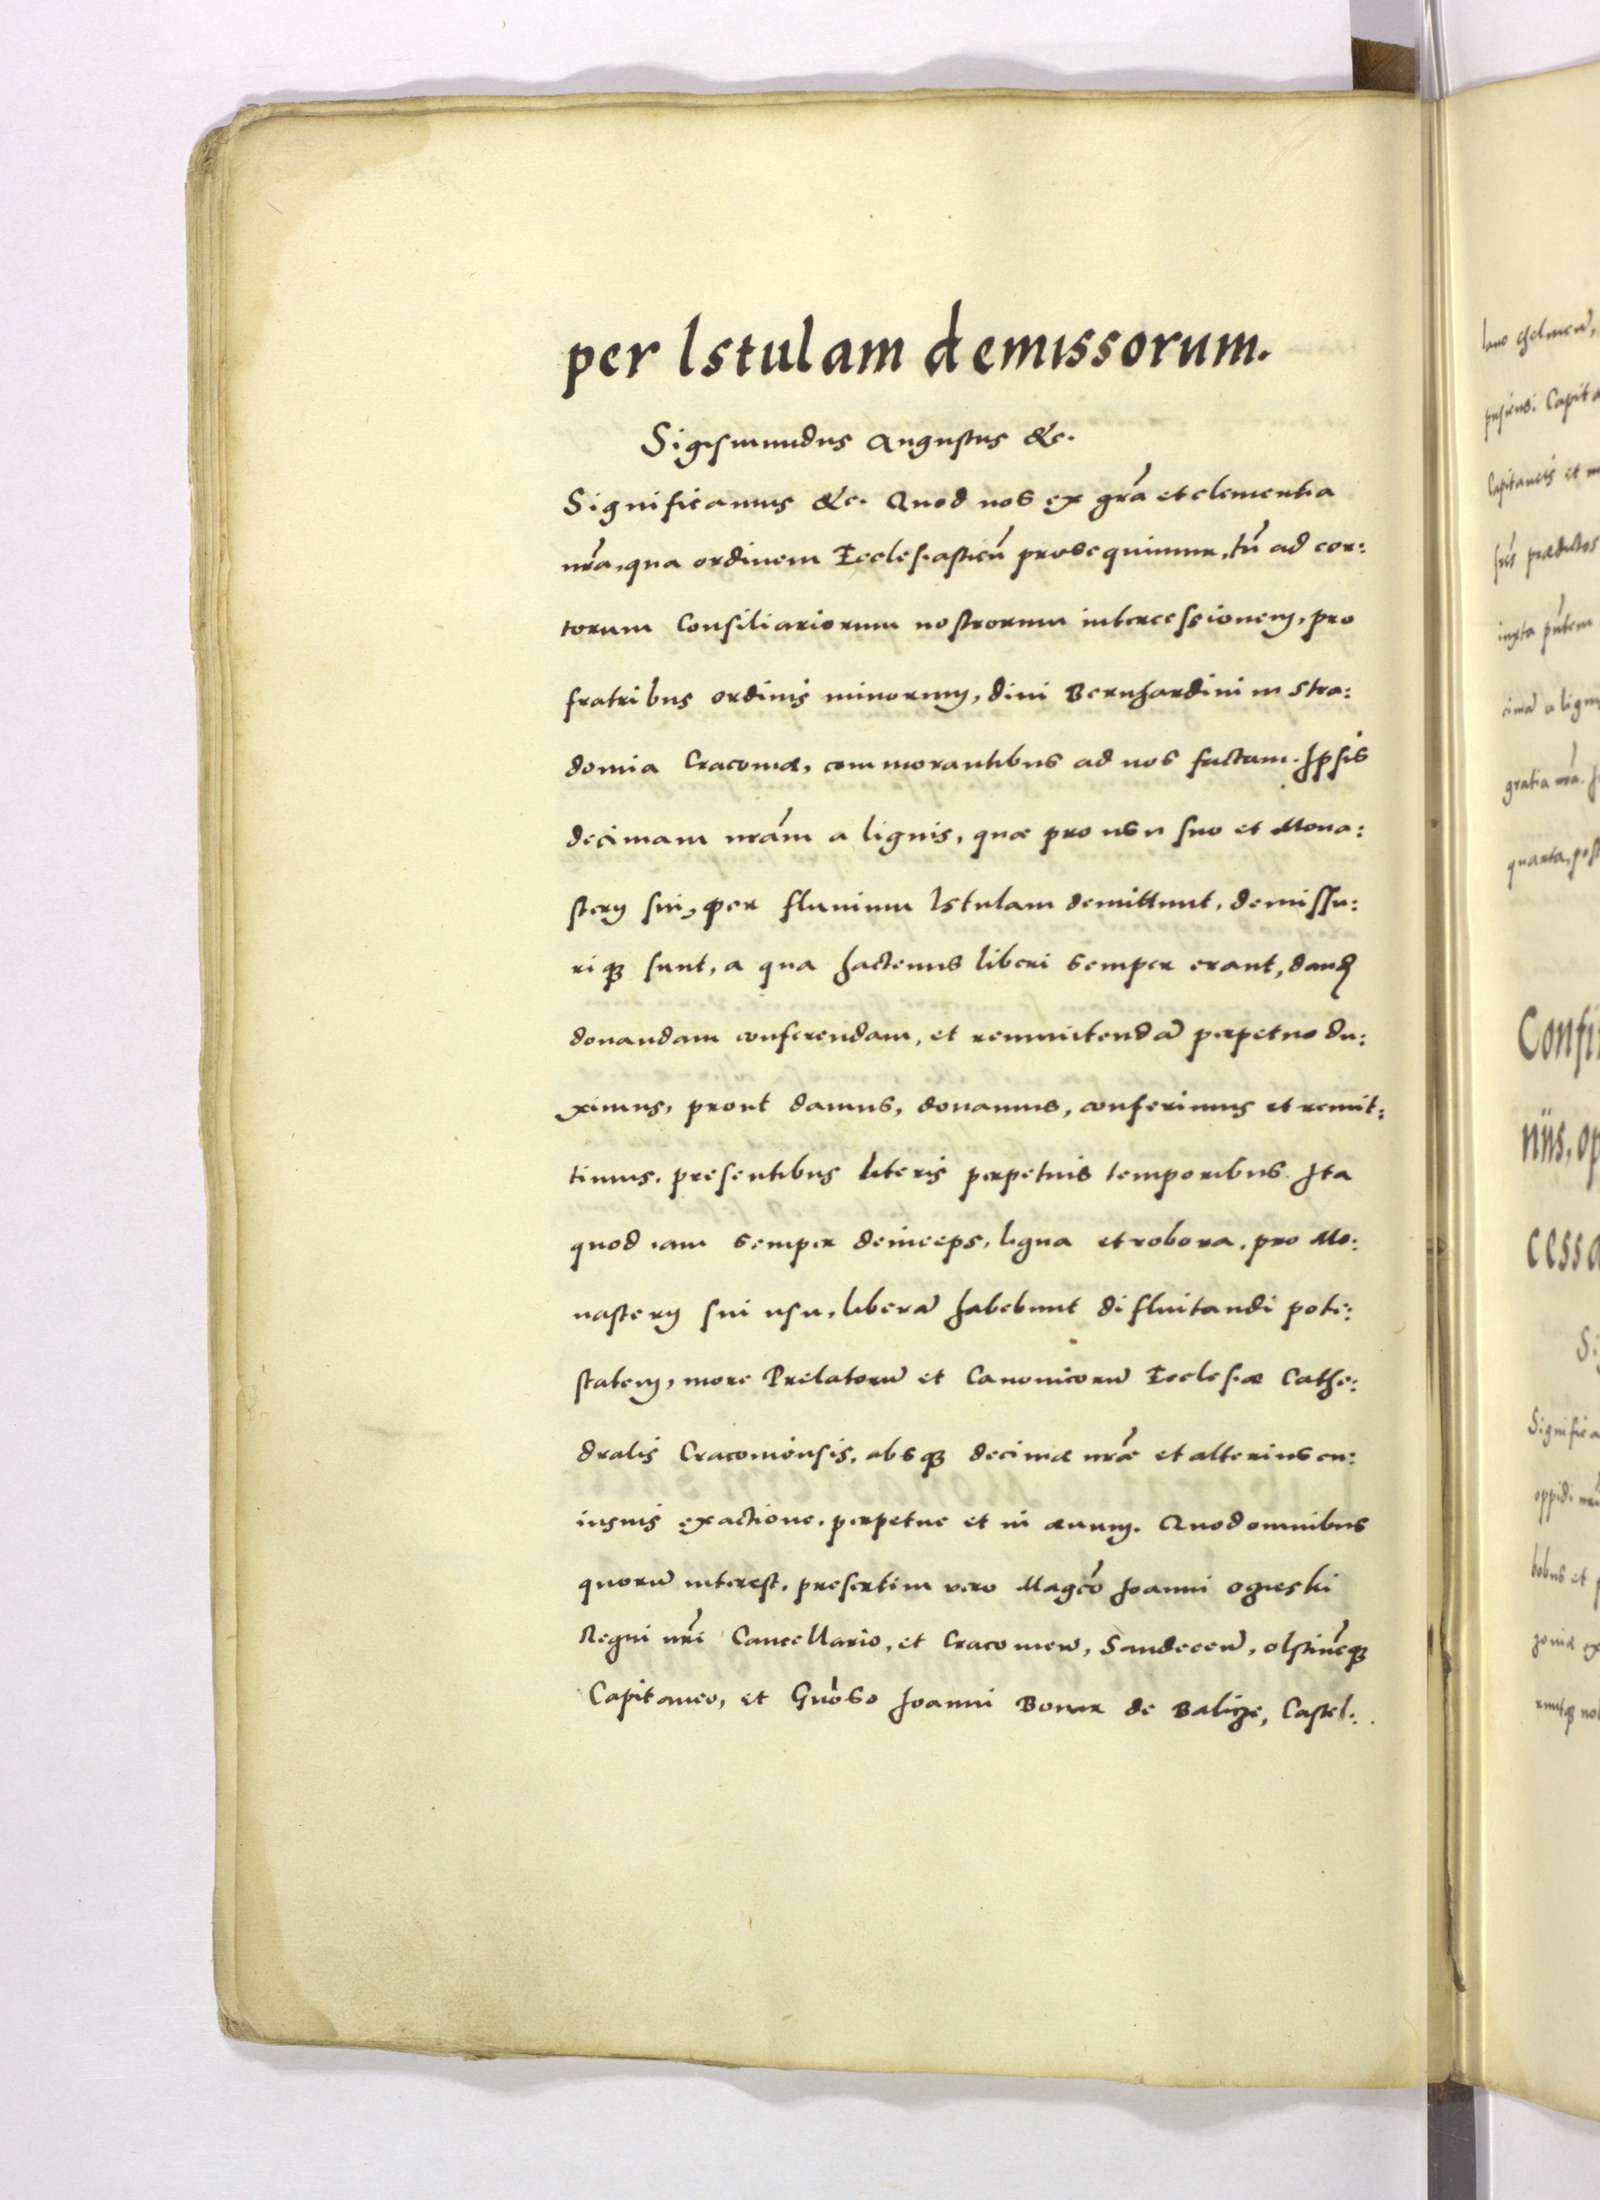 per Istulam demissorum.
Sigismundus Augustus &c.
Significamus &c. Quod nos ex grã et clementia
nrã, qua ordinem Ecclesiasticũ prosequimur, tũ ad cer:
torum Consiliariorum nostrorum intercessionem, pro
fratribus ordinis minorum, divi Bernhardini in Stra:
domia Cracoviæ, commorantibus ad nos factam. Ipsis
decimam nrãm a lignis, quæ pro usu suo et Mona:
stery sui, per fluvium Istulam demittunt, demissu:
riq3 sunt, a qua hactenus liberi semper erant, dandã
donandam conferendam, et remmittendã perpetuo du:
ximus, prout damus, donamus, conferimus et remit:
timus, presentibus literis perpetuis temporibus. Ita
quod iam semper deinceps, ligna et robora, pro Mo:
nastery sui usu, liberã habebunt difluitandi pote:
statem, more Prelatorũ et Canonicorũ Ecclesiæ Cathe:
dralis Cracoviensis, absq3 decimæ nræ̃ et alterius cu:
iusvis exactione, perpetue et in ævum. Quod omnibus
quorũ interest, presertim vero Magcõ Joanni Oczieski
Regni nrĩ Cancellario, et Cracovieñ, Sandeceñ, Olstineñq3
Capitaneo, et Gnõso Joanni Boner de Balicze, Castel:
lano Chelmeñ,
Capita
Capitaneis et
prædictos
iuxta pñtem
cimã a lignis
gratia nrã.
quarta, post
Confir
niis, op
cessa
Si
Significa
oppidi nrĩ